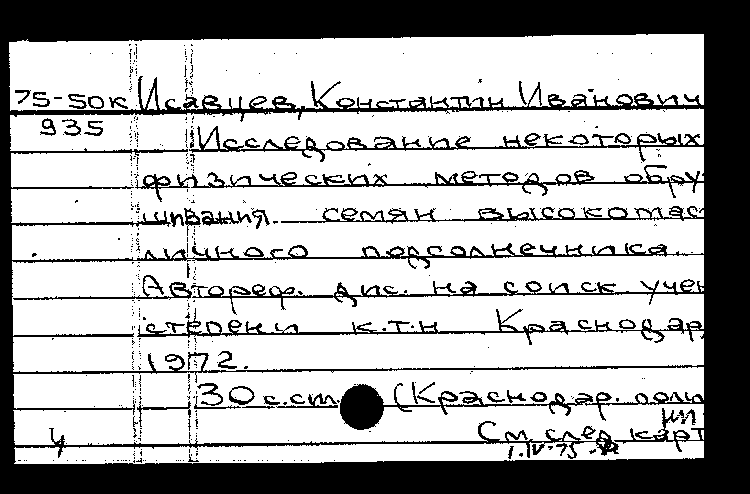 75-50к Исавцев, Константин Иванович
935 Исследование некоторых
физических методов обру
шивания семян высокомас
личного подсолнечника.
Автореф. дис. на соиск учен
степени к.т.н Краснодар,
1972.
30 с.ст (Краснодар. поли
См. след. карт
4 1.IV-75